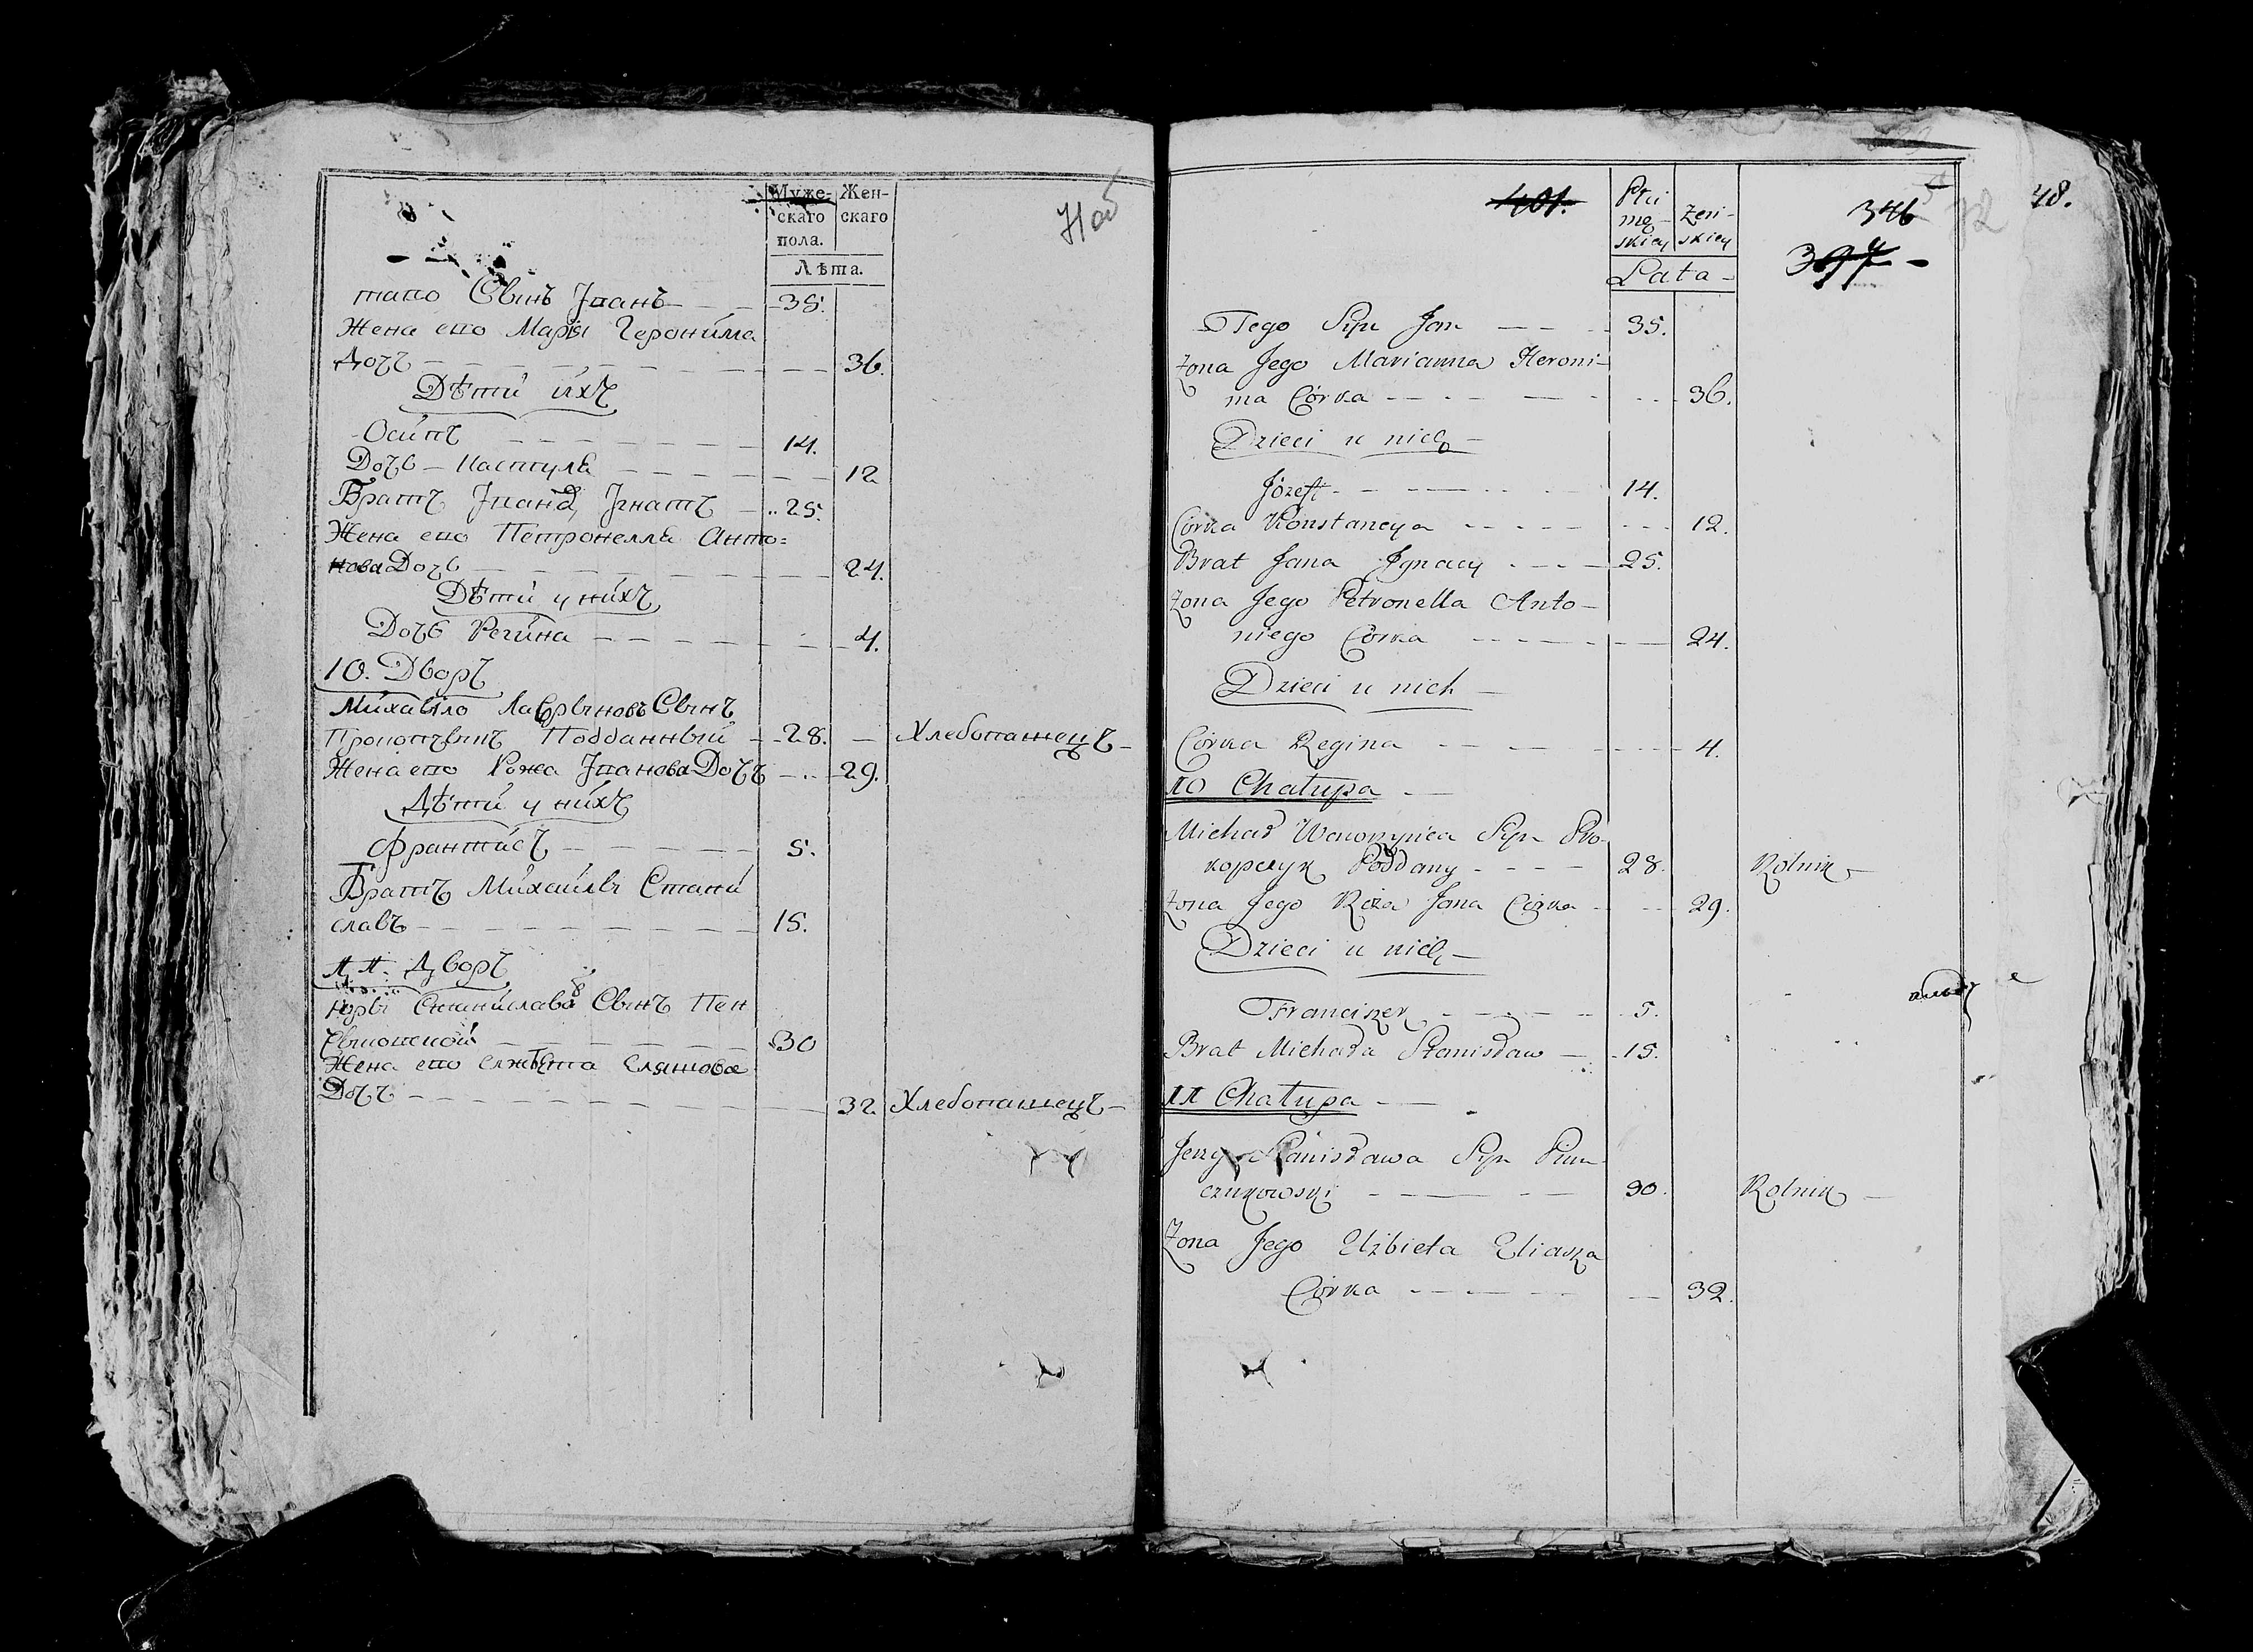 Муже-
скаго
пола.
Жен-
скаго
Лѣта.
таго Сынъ Іванъ - - - 35.
Жена его Марья Геронима
Дочь - - - - - - - 36.
Дѣти ихъ
Осипъ - - - - - - 14.
Дочь - - - - - - 12
Братъ Івана, Ігнатъ - 25.
Жена его Петронелля Анто=
нова Дочь - - - - - - - 24.
Дѣти у нихъ
Дочь Регина - - - - - - 4.
10. Дворъ
Михайло Сынъ
Подданный - 28. - Хлебопашецъ -
Жена его Рожа Іванова Дочь - 29.
Дѣти у нихъ
Францисъ - - - - - 5.
Братъ Михайлы Стани
славъ - - - - - - - - 15.
11. Дворъ
Юрьи Станислава Сынъ Пен
- - - - - - 30
Жена его Елжбета Еляшова
Дочь - - - - - - - - 32 Хлебопашецъ -
401.
Płci
mę-
skiey
żeń-
skiey
Lata -
346
397 -
48.
Tego Syn Jan - - - 35.
Żona Jego Marianna Heroni-
ma Córka - - - - 36.
Dzieci u nich -
Józef - - - - - 14.
Córka Konstancya - - - - 12.
Brat Jana Ignacy - - - 25.
Żona Jego Petronella Anto-
niego Córka - - - - - 24.
Dzieci u nich -
Córka Regina - - - - - 4.
10 Chałupa -
Michał Wawrzyńca Syn Pro-
kopczyk Poddany - - - - 28. Rolnik -
Żona Jego Róża Jana Córka - - 29.
Dzieci u nich -
Franciszek - - - - - 5.
Brat Michała Stanisław - 15.
11 Chałupa -
Jerzy Stanisława Syn Pien-
czukowski - - - - - 30. Rolnik -
Żona Jego Elżbieta Eliasza
Córka - - - - - - 32.